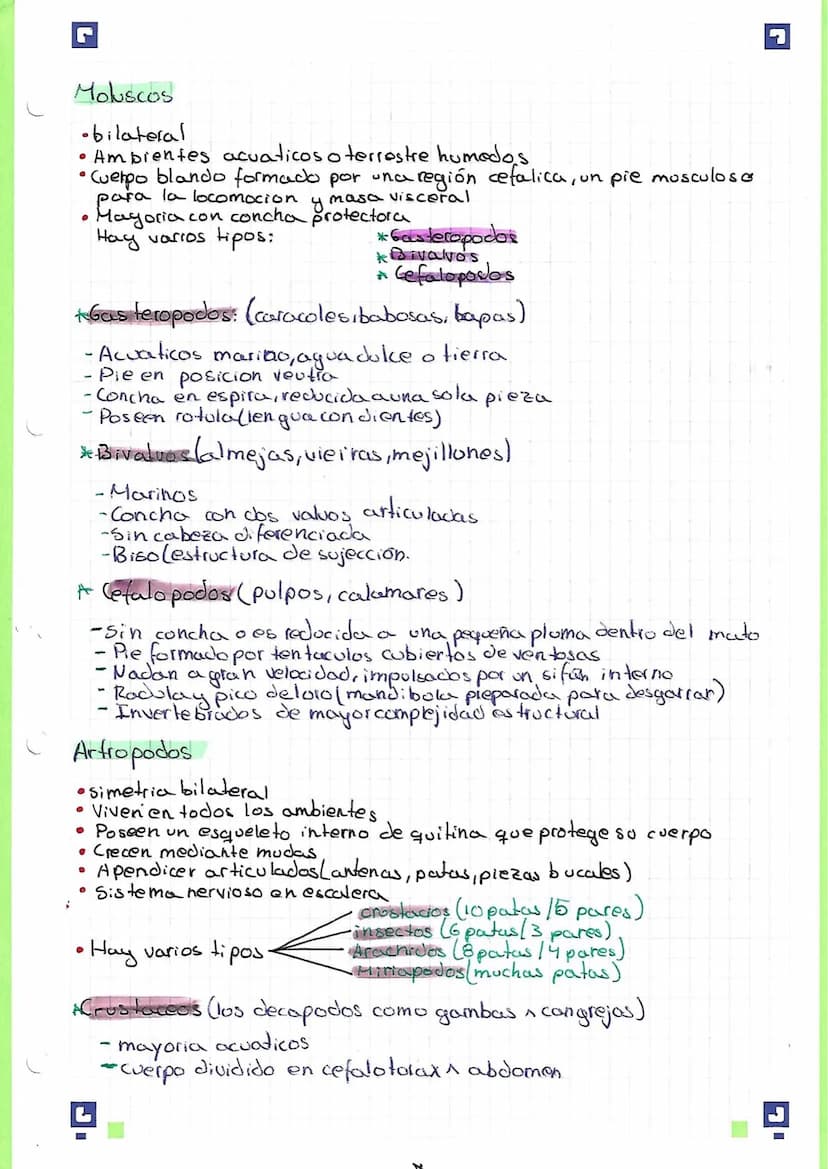 Moluscos
• bilateral
• Ambientes acuaticos o terrestre humedos
• Cuerpo blando formado por una región cefalica, un pie musculoso
para la locomocion y masa visceral
• Mayoria con concha protectora
Hay varios tipos: * Gasteropodos
* Bivalvos
* Cefalopodos
* Gasteropodos: (caracoles, babosas, lapas)
- Acuaticos marino, agua dulce o tierra
- Pie en posicion veutra
- Concha en espira, reducida a una sola pieza
- Poseen rotula (lengua con dientes)
* Bivalvos (almejas, vieiras, mejillones)
- Marinos
- Concha con dos valvas articuladas
- Sin cabeza diferenciada
- Biso (estructura de sujección.
* Cefalopodos (pulpos, calamares)
- Sin concha o es reducida a una pequeña pluma dentro del mato
- Pie formado por tentaculos cubiertos de ventosas
- Nadan a gran velocidad, impulsados por un sifón interno
- Radula y pico de loro (mandibola preparada para desgarrar)
- Invertebrados de mayor complejidad estructural
Artropodos
• simetria bilateral
• Viven en todos los ambientes
• Poseen un esqueleto interno de quitina que protege su cuerpo
• Crecen mediante mudas
• Apendicer articulados (antenas, patas, piezas bucales)
• Sistema nervioso en escalera
crostacios (10 patas / 5 pares)
insectos (6 patas / 3 pares)
• Hay varios tipos Arachidos (8 patas / 4 pares)
Miriapodos (muchas patas)
* Crustaceos (los decapodos como gambas ^ cangrejos)
- mayoria acuaticos
- cuerpo dividido en cefalotolax ^ abdomen